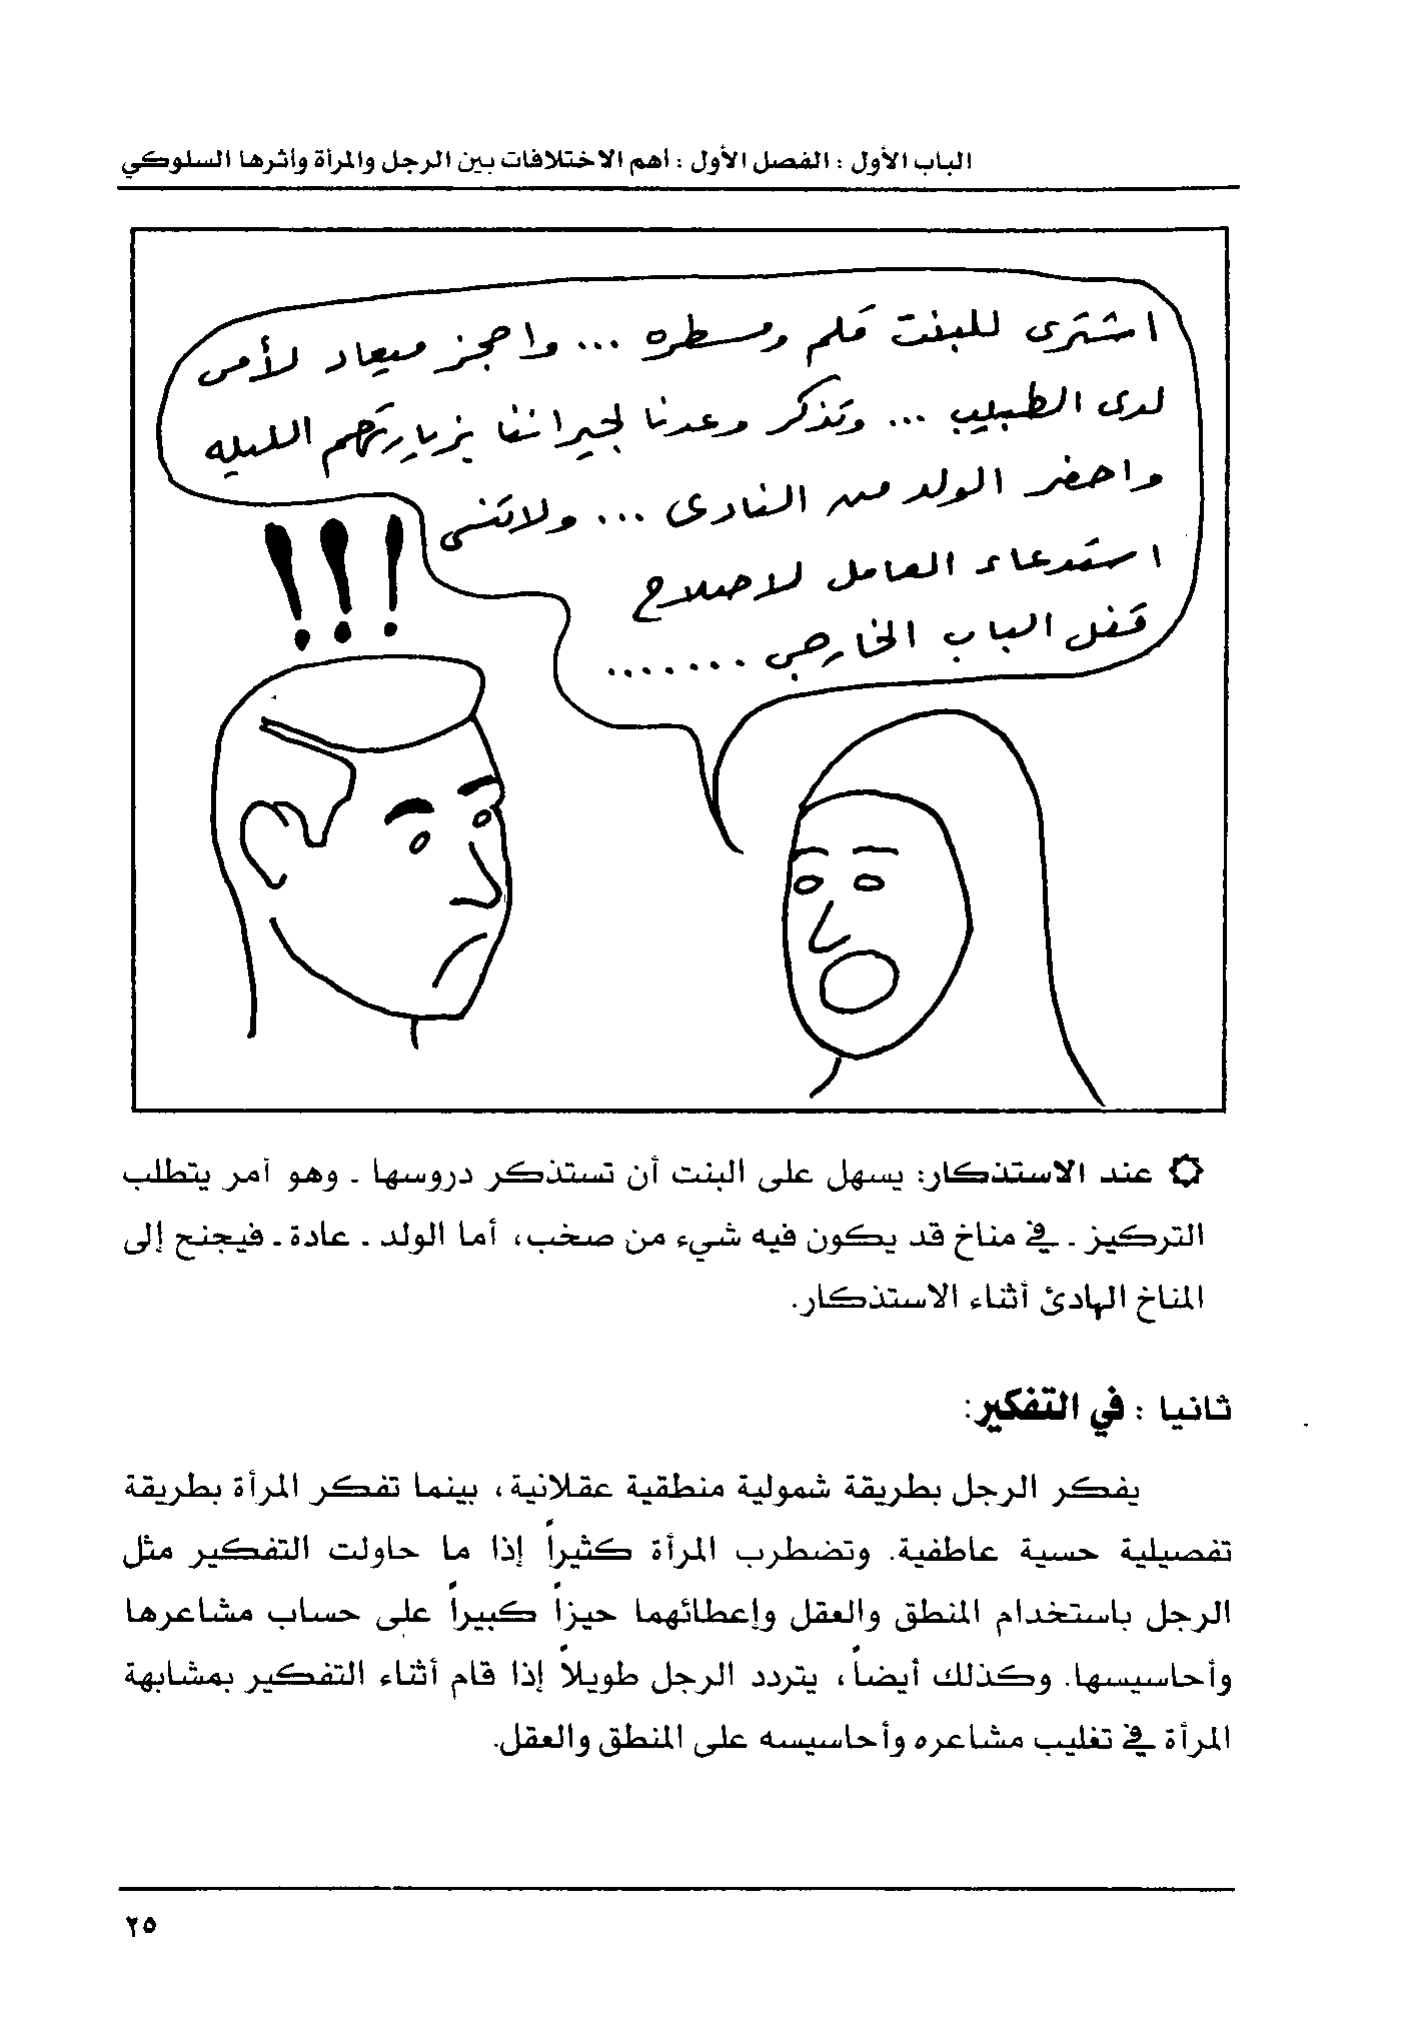 الباب الأول : الفصل الأول : أهم الاختلافات بين الرجل والمرأة وأثرها السلوكي
اشترى للبنت قلم ومسطره ... واحجز ميعاد لأمى
لدى الطبيب ... وتذكر وعدنا لجيراننا بزيارتهم الليله
واحضر الولد من النادى ... ولاتنسى
استدعاء العامل لاصلاح
قفل الباب الخارجى .......
!!!
عند الاستذكار: يسهل على البنت أن تستذكر دروسها ـ وهو أمر يتطلب
التركيز ـ في مناخ قد يكون فيه شيء من صخب، أما الولد ـ عادة ـ فيجنح إلى
المناخ الهادئ أثناء الاستذكار.
ثانيا : في التفكير:
يفكر الرجل بطريقة شمولية منطقية عقلانية، بينما تفكر المرأة بطريقة
تفصيلية حسية عاطفية. وتضطرب المرأة كثيراً إذا ما حاولت التفكير مثل
الرجل باستخدام المنطق والعقل وإعطائهما حيزاً كبيراً على حساب مشاعرها
وأحاسيسها. وكذلك أيضاً، يتردد الرجل طويلاً إذا قام أثناء التفكير بمشابهة
المرأة في تغليب مشاعره وأحاسيسه على المنطق والعقل.
٢٥